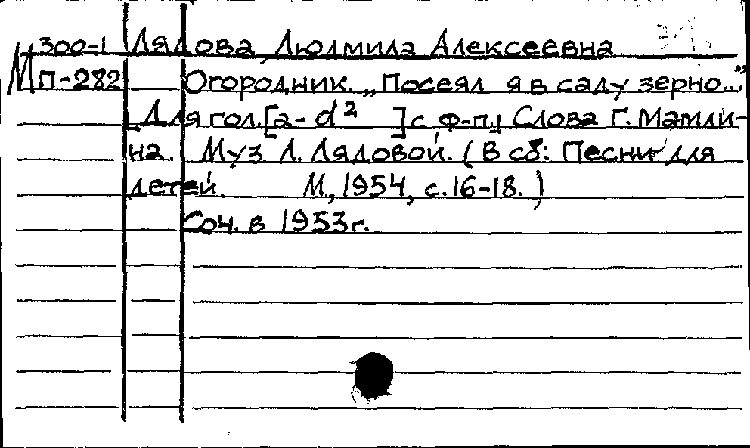 300-1 Лядова Людмила Алексеевна
М П-282 Огородник. „Посеял я в саду зерно..."
[Для гол. [a-d²] с ф-п.] Слова Г. Мамли-
на. Муз Л. Лядовой. (В сб: Песни для
детей. М., 1954, с. 16-18.)
Соч. в 1953 г.